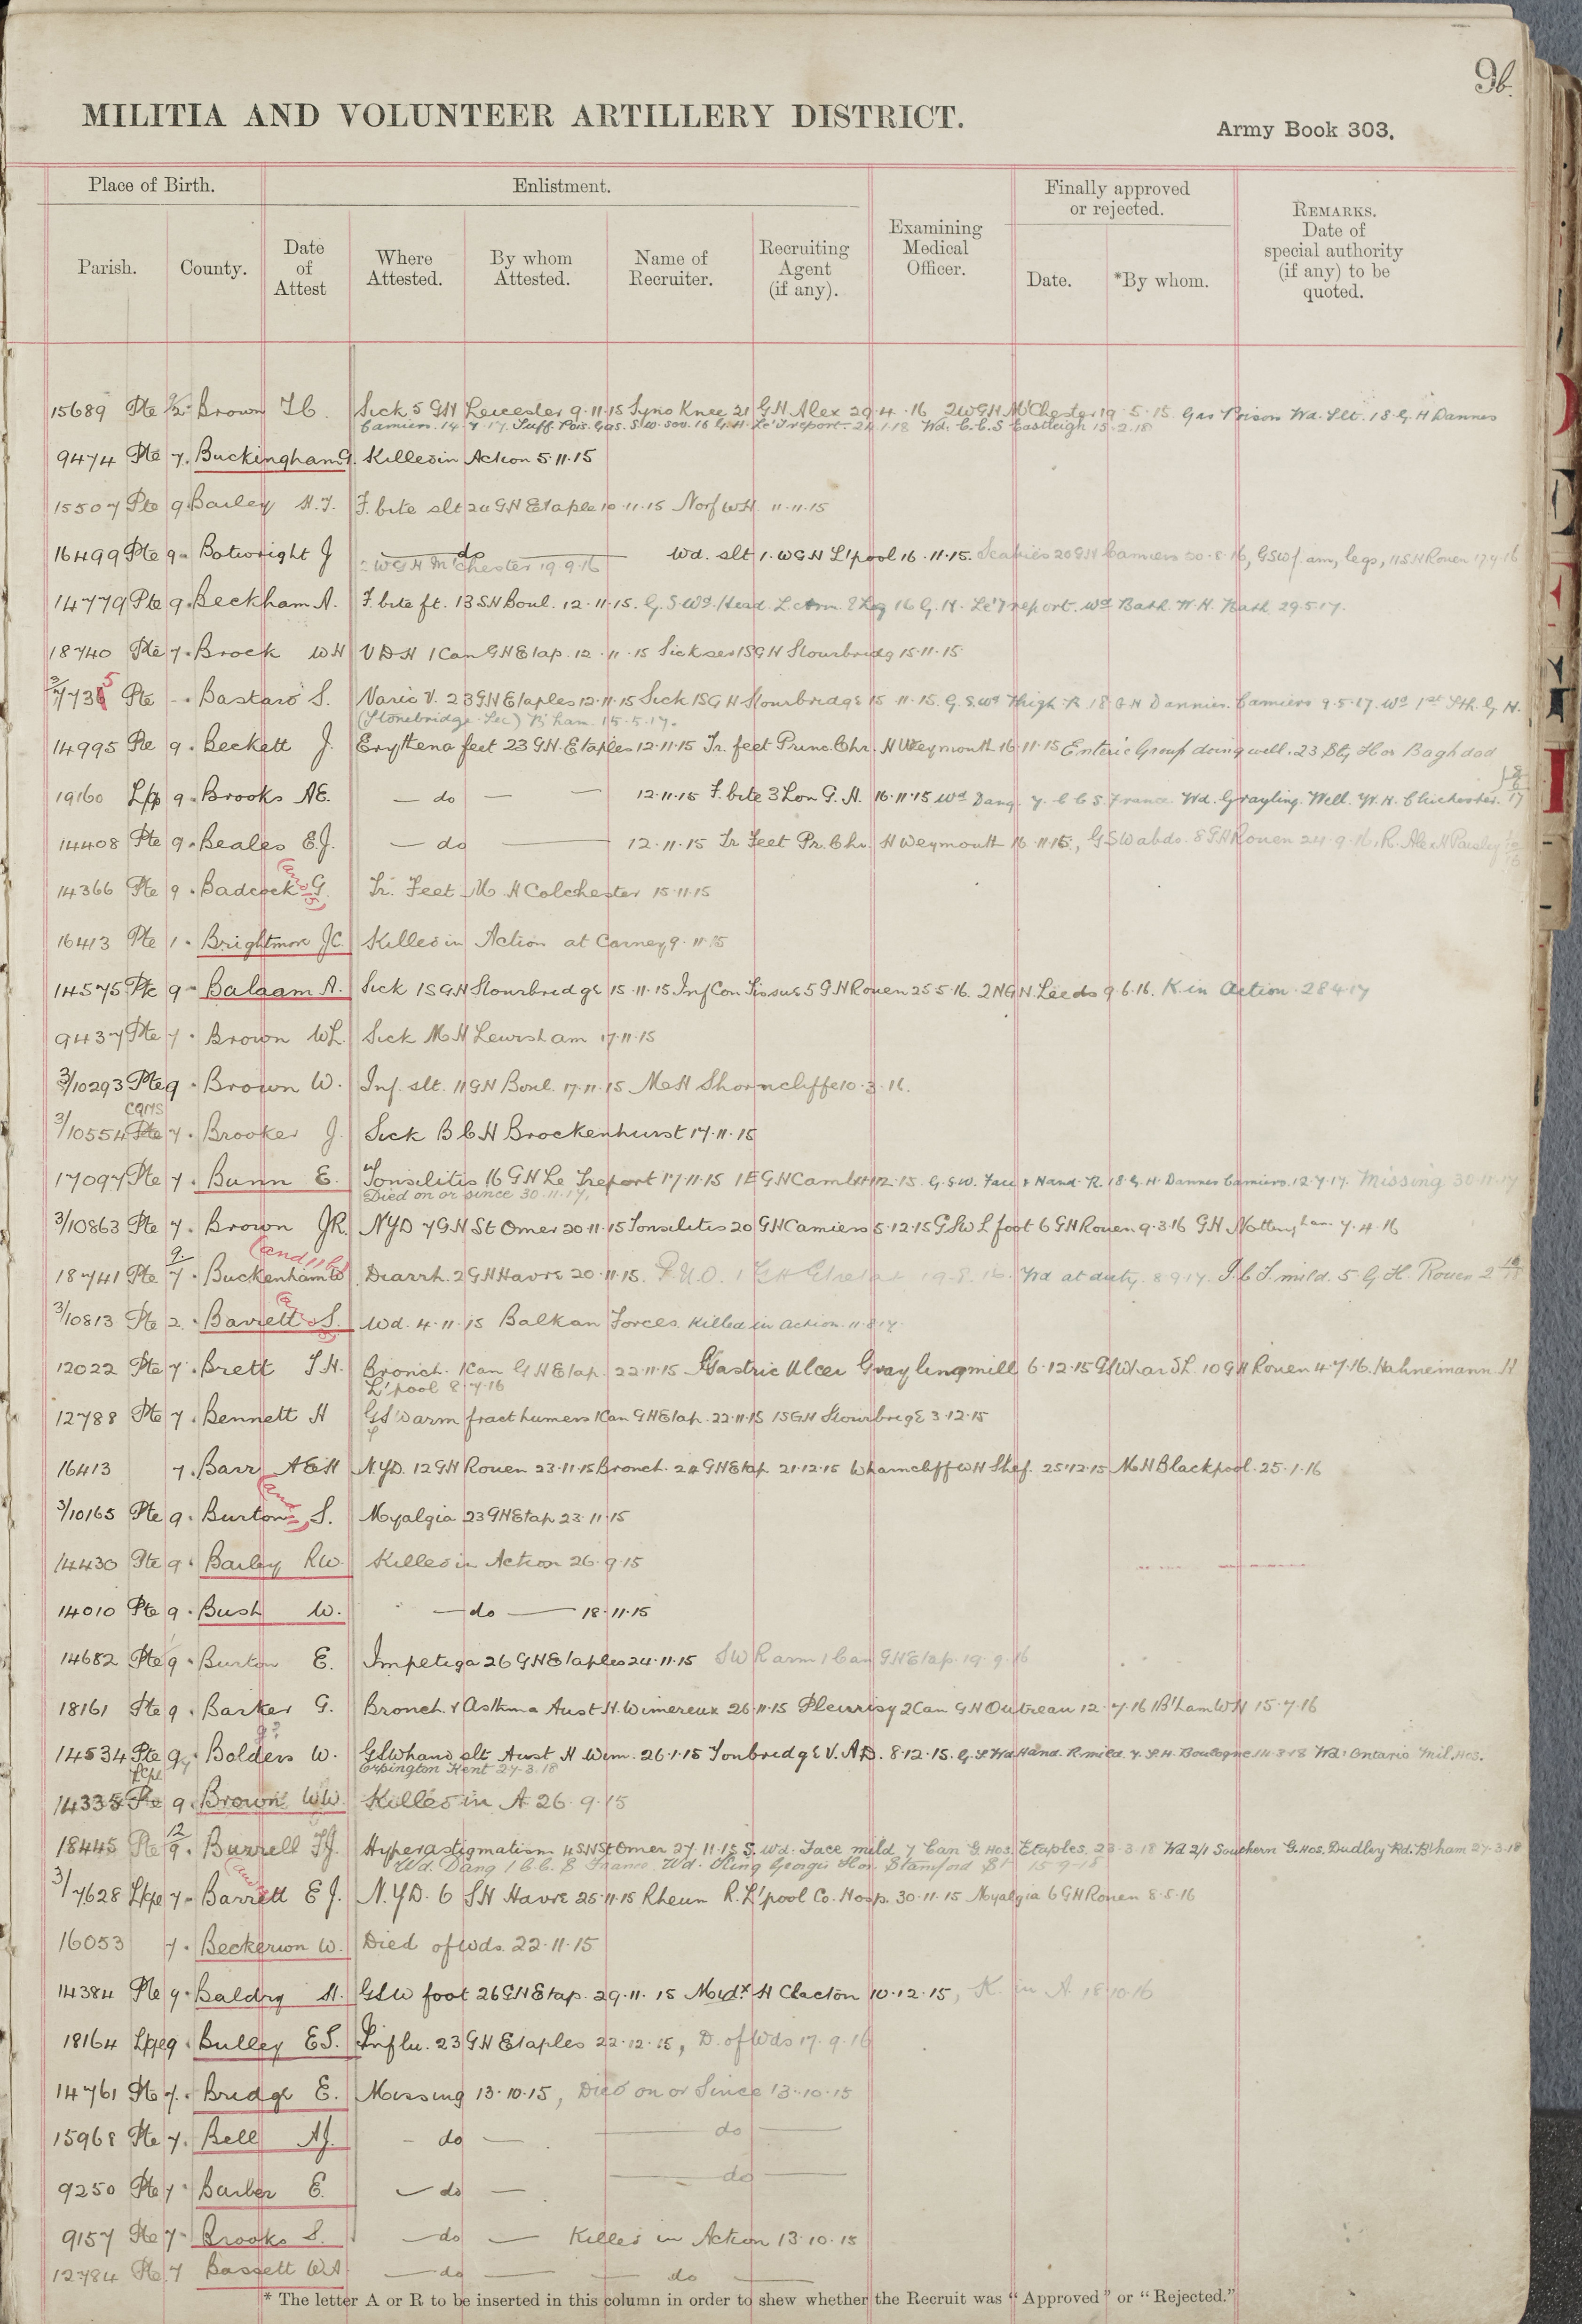 9b.
MILITIA AND VOLUNTEER ARTILLERY DISTRICT.
Army Book 303.
Place of Birth.
Enlistment.
Finally approved or rejected.
Parish.
County.
Date of Attest
Where Attested.
By whom Attested.
Name of Recruiter.
Recruiting Agent (if any).
Examining Medical Officer.
Date.
*By whom.
REMARKS. Date of special authority (if any) to be quoted.
15689 Pte Brown Sick 5 GH Leicester 9.11.15 Syno Knee 21 GH Alex 29.4.16 2WGH M'Chester 19.5.15. Gas Poison Wd. Slt. 18 G.H Dannes
Camiers. 14.7.17. Suff. Pois. Gas. S.W. sev. 16 G.H. Le Treport. 24.1.18 Wd. C.C.S Eastleigh 15.2.18
9474 Pte 7. Buckingham G. Killed in Action 5.11.15
15507 Pte 9. Bailey H.J. F. bite slt 24 GH Etaple 10.11.15 Norf WH. 11.11.15
16499 Pte 9. Botwright J do Wd. slt 1. WGH L'pool 16.11.15. Scabies 20 GH Camiers 30.8.16, GSW f. arm, legs, 11 SH Rouen 17.9.16
WGH M'chester 19.9.16
14779 Pte 9. Beckham A. F. bite ft. 13 SH Boul. 12.11.15. G.S Wd. Head. L. Arm. & Leg 16 G.H. Le Treport. Wd Bath. W.H. Bath 29.5.17.
18740 Pte 7. Brock WH VDH 1 Can GH Etap. 12.11.15 Sick sev 1SGH Stourbridg 15.11.15
3/7735 Pte - Bastard S. Varic V. 23 GH Etaples 12.11.15 Sick 1SGH Stourbridge 15.11.15. G.S. Wd Thigh R. 18 G H Dannes. Camiers 9.5.17. Wd 1st Sth. G H.
(Stonebridge Sec) B'ham. 15.5.17.
14995 Pte 9. Beckett J. Erythena feet 23 GH. Etaples 12.11.15 Tr. feet Princ. Chr. H Weymouth 16.11.15 Enteric Group doing well. 23 Sty Hos Baghdad
19160 L/Cp 9. Brooks AE. do 12.11.15 F. bite 3 Lon G. H. 16.11.15 Wd Dang. 7. C C S. France Wd. Grayling. Well. W.H. Chichester.
14408 Pte 9. Beales E.J. do 12.11.15 Tr Feet Pr. Chr. H Weymouth 16.11.15, GSW abdo. 8 GH Rouen 24.9.16, R. Alex H Paisley
14366 Pte 9. Badcock G. Tr. Feet M. H Colchester 15.11.15
16413 Pte 1. Brightmore JC. Killed in Action at Carney 9.11.15
14575 Pte 9. Balaam A. Sick 1SGH Stourbridge 15.11.15 Inf Con Tissue 5 GH Rouen 25.5.16. 2NGH. Leeds 9.6.16. K. in Action. 28.4.17
9437 Pte 7. Brown WL. Sick MH Lewisham 17.11.15
3/10293 Pte 9. Brown W. Inf. slt. 11 GH Boul. 17.11.15 MeH Shorncliffe 10.3.16.
CQMS
3/10554 Pte 7. Brooker J. Sick B C H Brockenhurst 17.11.15
17097 Pte 7. Bunn E. Tonsilitis 16 GH Le Treport 17.11.15 1E GH Camb 12.15. G.S.W. Face & Hand R. 18 G.H. Dannes Camiers. 12.7.17. Missing 30.11.17
Died on or since 30.11.17,
3/10863 Pte 7. Brown JR. NYD 7 GH St Omer 20.11.15 Tonsilitis 20 GH Camiers 5.12.15 GSW L foot 6 GH Rouen 9.3.16 GH Nottingham 7.4.16
18741 Pte 9/7. Buckenham W Diarrh. 2 GH Havre 20.11.15. P.U.O. 1 GH Etretat 19.8.16. Wd at duty. 8.9.17. I.C.T. mild. 5 G H. Rouen
3/10813 Pte 2. Barrett S. Wd. 4.11.15 Balkan Forces. Killed in action. 11.8.17.
12022 Pte 7. Brett Bronch. 1 Can GH Etap. 22.11.15 Gastric Ulcer Graylingmill 6.12.15 10 GH Rouen 4.7.16. Hahnemann H
L'pool 8.7.16
12788 Pte 7. Bennett H GSW arm fract humers 1 Can GH Etap. 22.11.15 1SGH Stourbrige 3.12.15
16413 7. Barr AEH N.Y.D. 12 GH Rouen 23.11.15 Bronch. 24 GH Etap 21.12.15 Wharncliff WH Shef. 25.12.15 MH Blackpool. 25.1.16
3/10165 Pte 9. Burton S. Myalgia 23 GH Etap 23.11.15
14430 Pte 9. Bailey RW. Killed in Action 26.9.15
14010 Pte 9. Bush W. do 18.11.15
14682 Pte 9. Burton E. Impetiga 26 GH Etaples 24.11.15 SW R arm 1 Can GH Etap. 19.9.16
18161 Pte 9. Barker G. Bronch. & Asthma Aust H. Wimereux 26.11.15 Pleurisy 2 Can GH Outreau 12.7.16 1B'ham WH 15.7.16
14534 Pte 9. Bolders W. GSW hand slt Aust H Wim. 26.1.15 Tonbridge V.A.D. 8.12.15. Hand. R. mild. 7. S.H. Boulogne 14.3.18 Wd. Ontario Mil. Hos.
Orpington Kent 27.3.18
L/Cpl
14335 Pte 9. Brown WW. Killed in A 26.9.15
18445 Pte 12/9. Burrell Hyperastigmatism 4 SH St Omer 27.11.15 S. Wd. Face mild 7 Can G. Hos. Etaples. 23.3.18 Wd 2/1 Southern G. Hos. Dudley Rd. B'ham 27.3.18
Wd. Dang 1 C.C.S France. Wd. King Georges Hos. Stamford St 15.9.18
3/7628 L/Cpl 7. Barrett E J. N.Y.D. 6 SH Havre 25.11.15 Rheum R. L'pool Co. Hosp. 30.11.15 Myalgia 6 GH Rouen 8.5.16
16053 7. Beckerson W. Died of wds. 22.11.15
14384 Pte 9. Baldry H. GSW foot 26 GH Etap. 29.11.15 Middx H Clacton 10.12.15, K. in A. 18.10.16
18164 L/Cpl 9. Bulley ES. Influ. 23 GH Etaples 22.12.15, D. of Wds 17.9.16
14761 Pte 7. Bridge E. Missing 13.10.15, Died on or Since 13.10.15
15968 Pte 7. Bell AJ. do do
9250 Pte 7. Barber E. do do
9157 Pte 7. Brooks S. do Killed in Action 13.10.15
12784 Pte 7 Bassett WA do do
* The letter A or R to be inserted in this column in order to shew whether the Recruit was "Approved" or "Rejected."